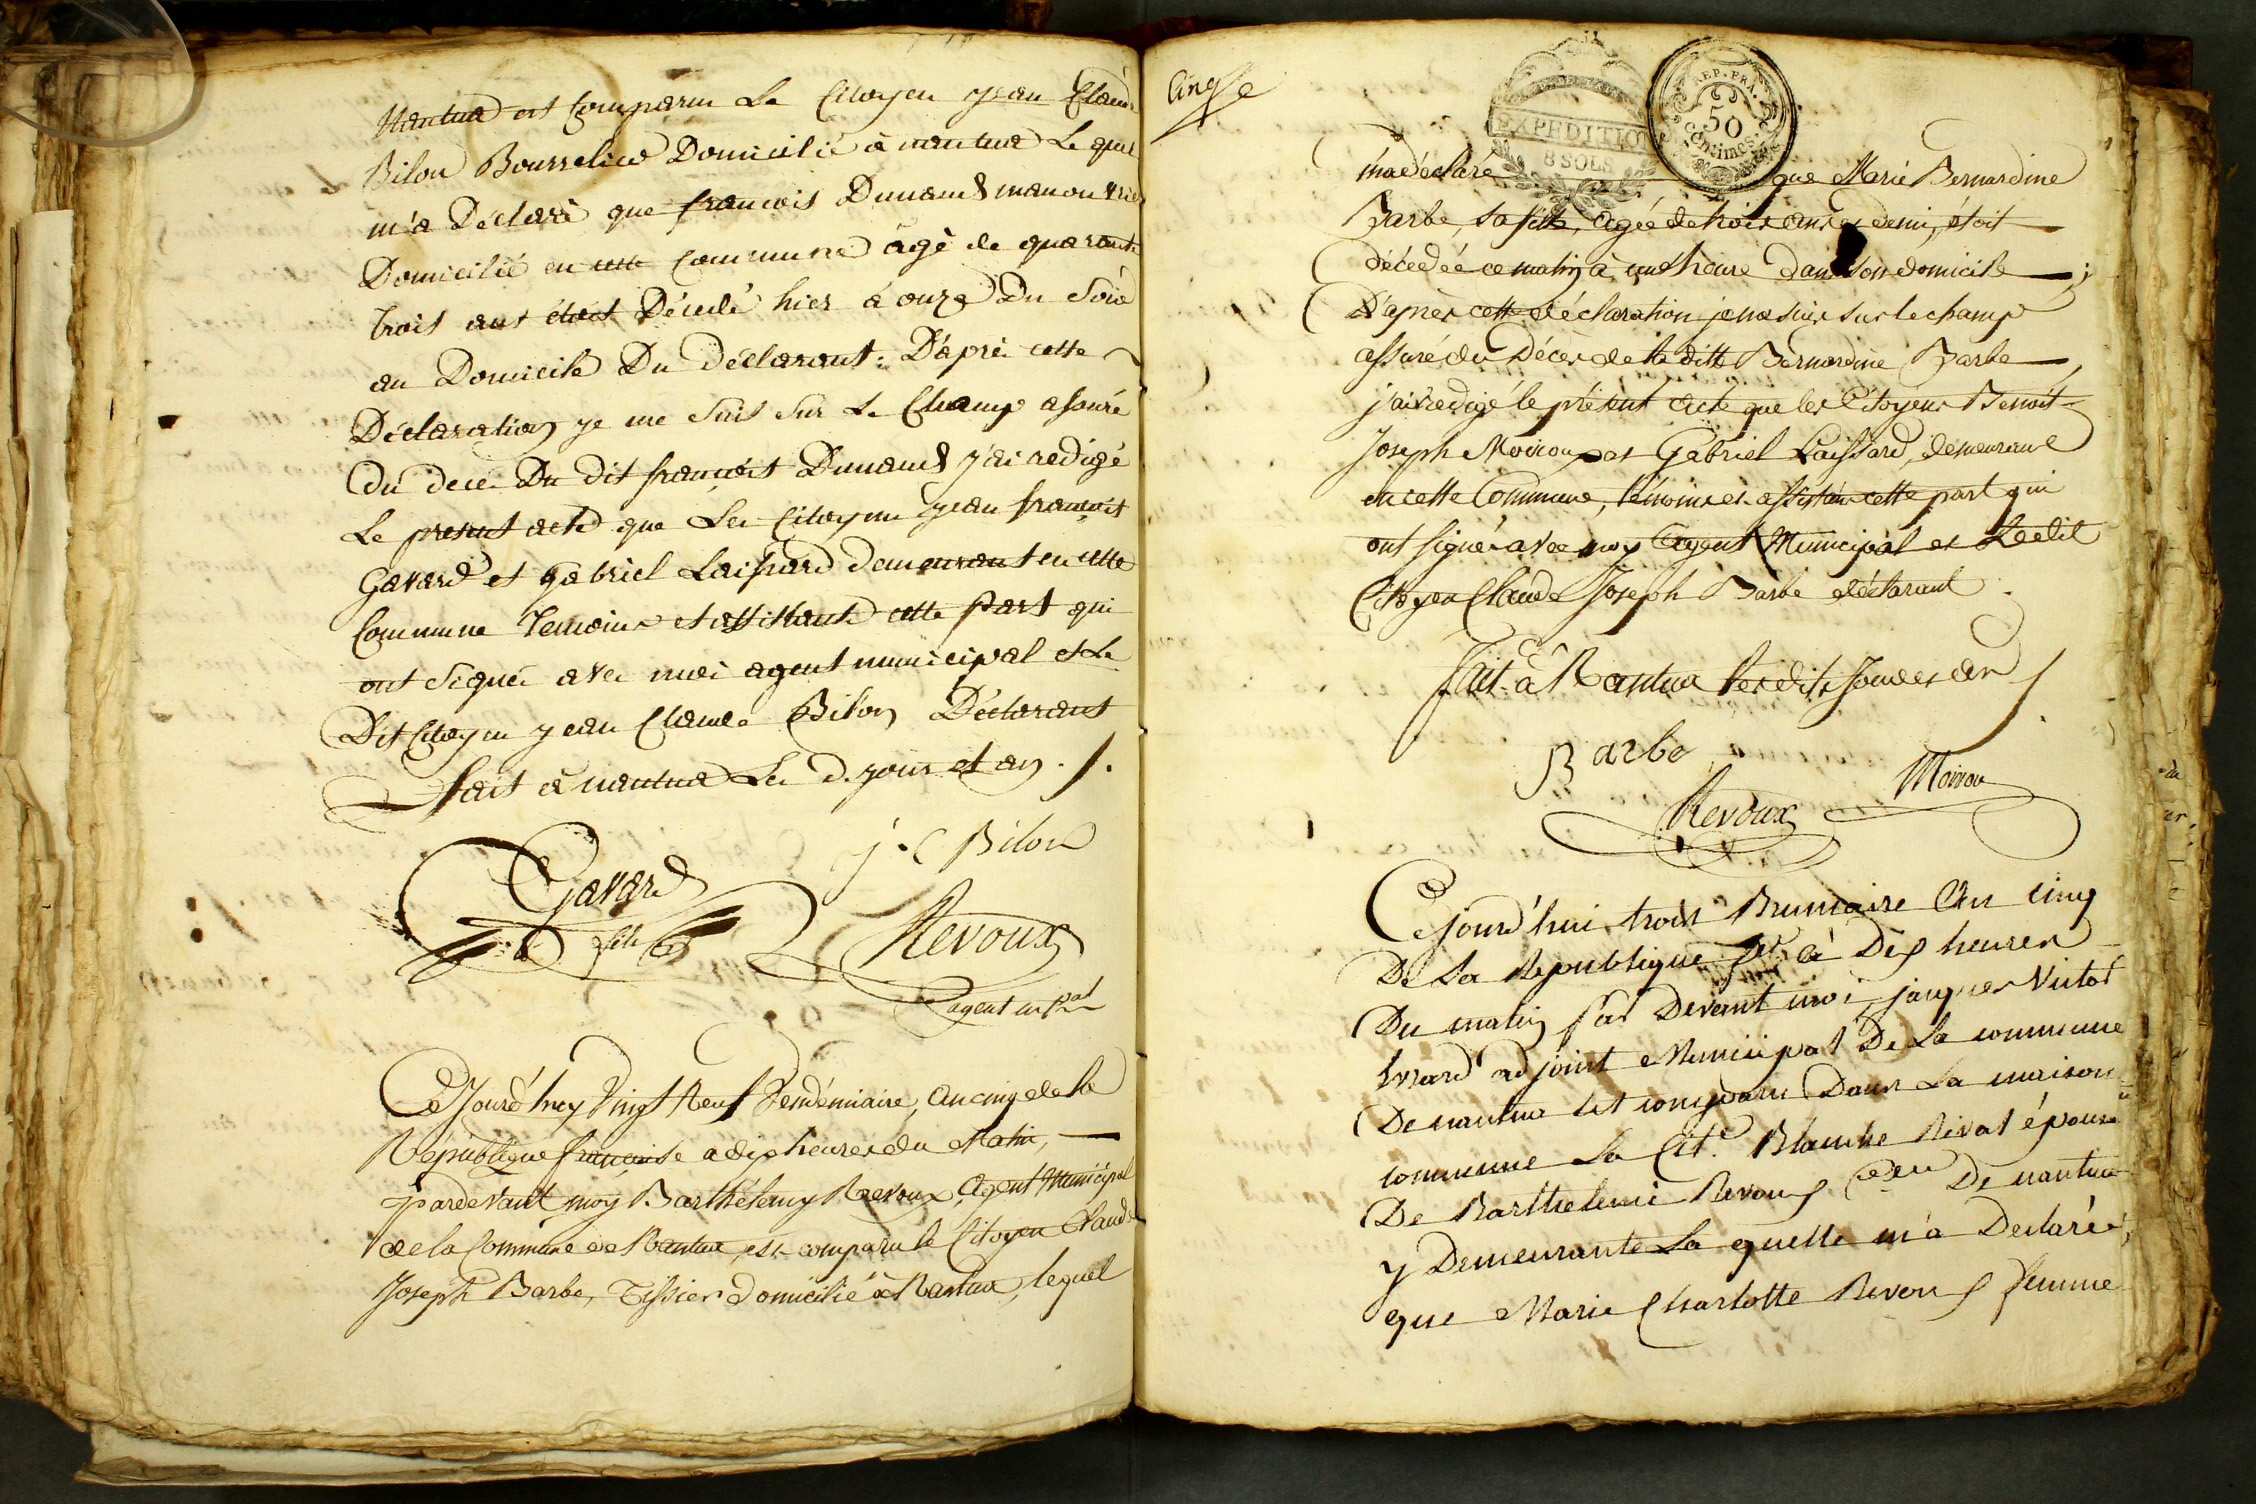 Nantua est Comparu Le Citoyen jean Claude
Bilon Bourrelier Domicilié à nantua Le quel
m'a Déclaré que francois Dunand manouvrier
Domicilié en cette Commune âgé de quarante
trois ans étoit Décedé hier à onze Du Soir
au Domicile Du déclarant. D'après cette
Déclaration je me Suis Sur Le Champ assuré
du decè Du dit françois Dunand j'ai rédigé
Le present acte que Les Citoyens jean françois
Gavard et Gabriel Laissard demeurant en cette
Commune Temoins et assistants cette part qui
ont Signé avec moi agent municipal et Le
Dit Citoyen jean Claude Bilon Déclarant
fait à nantua Les d. jour et an ./.
J. C Bilon
Gavard
fils
Revoux
agent mpal
Ce Jourd'huy Vingt Neuf Vendémiaire, an cinq de la
République francoise a dix heures du Matin,
pardevant moy Barthélemy Revoux, Agent Municipal
de la Commune de Nantua, est comparu le Citoyen Claude
Joseph Barbe, Tissier domicilié à Nantua, lequel
Cinq
EXPEDITIO
8 SOLS
REP. FRA.
50
centimes
m'a déclaré que Marie Bernardine
Barbe, sa fille, agée de trois ans et demi, étoit
décédée ce matin à une heure dans son domicile ;
D'après cette déclaration je me suis sur le champ
assuré du Décès de la ditte Bernardine Barbe
j'ai rédigé le présent acte que les Citoyens Benoit
Joseph Moiroux et Gabriel Laissard, demeurant
en cette Commune, témoins et assistan cette part qui
ont signé avec moy Agent Municipal et Ledit
Citoyen Claude Joseph Barbe déclarant.
Fait à Nantua les dits Jour et an /.
Barbe
Moirou
Revoux
Cejourd'hui trois Brumaire An cinq
De La Republique à Dix heures
Du matin par Devant moi jacques Victor
Evrard adjoint Municipal De La commune
De nantua Est comparu Dans La maison
commune La Cit.e Blanche Rivat épouse
De Barthelemi Revoux De nantua
y Demeurante La quelle m'a Declarée,
que Marie Charlotte Revoux femme